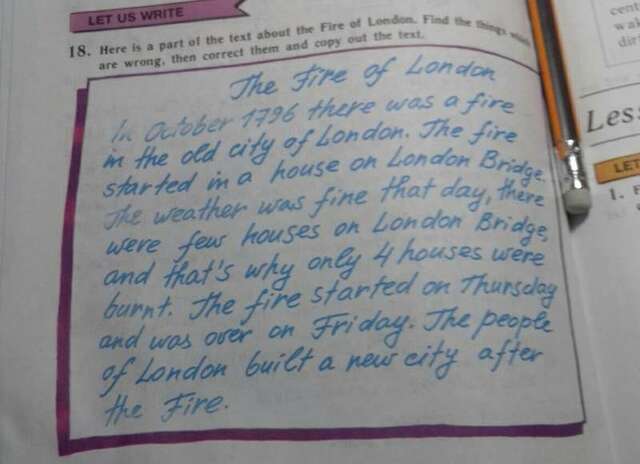 LET US WRITE
18. Here is a part of the text about the Fire of London. Find the things which
are wrong, then correct them and copy out the text.
The Fire of London
In October 1796 there was a fire
in the old city of London. The fire
started in a house on London Bridge.
The weather was fine that day, there
were few houses on London Bridge,
and that's why only 4 houses were
burnt. The fire started on Thursday
and was over on Friday. The people
of London built a new city after
the Fire.
Les
LET
1.